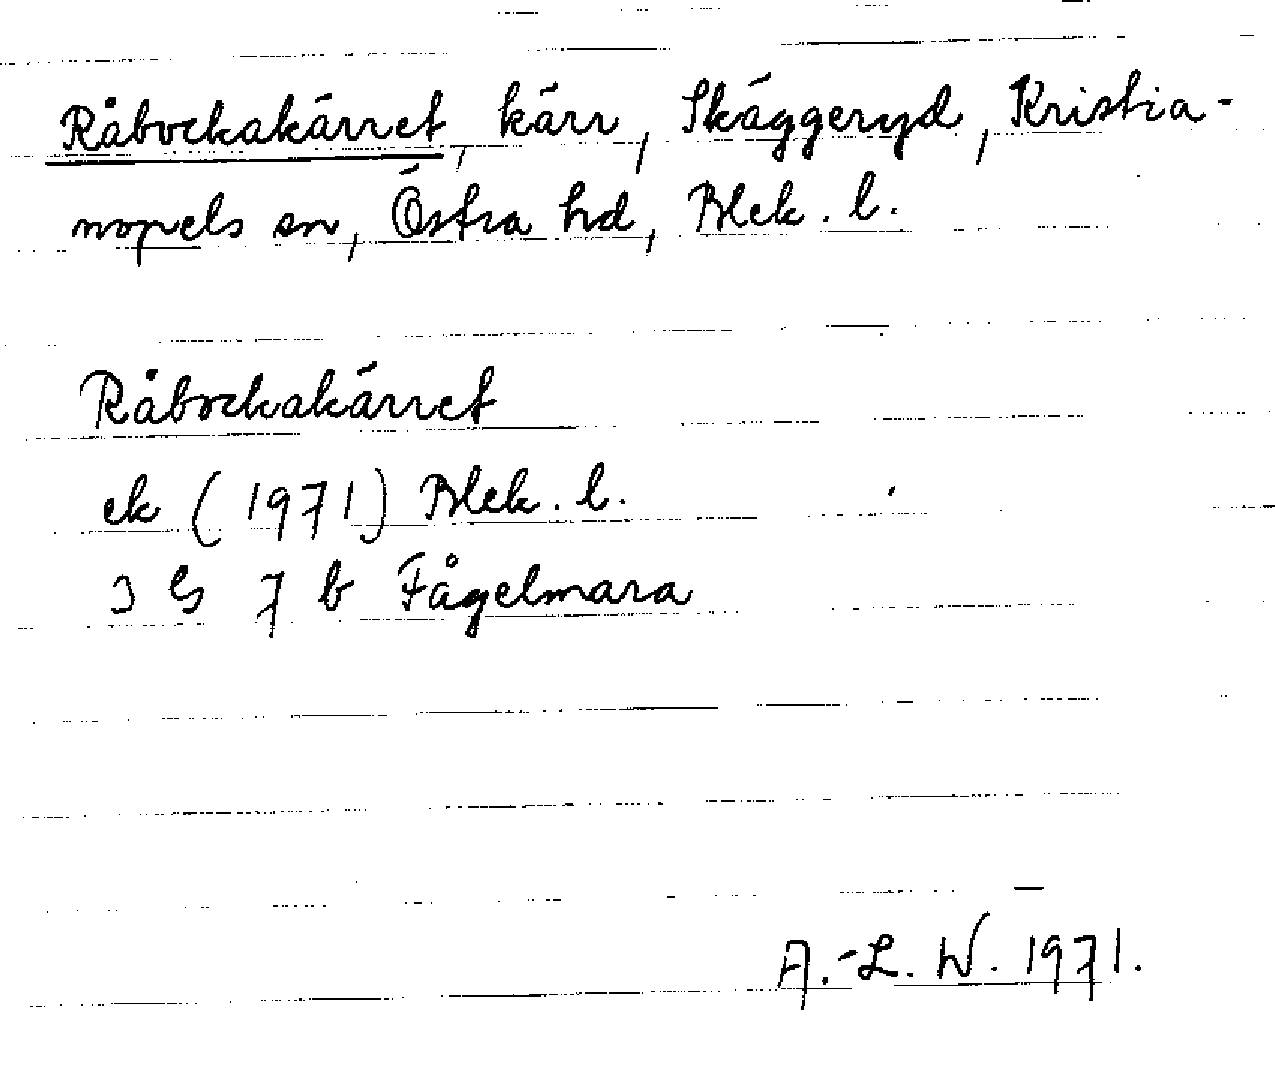 Råbockakärret, kärr, Skäggeryd, Kristia-
nopels sn, Östra hd, Blek. l.
Råbockakärret
ek (1971) Blek. l.
3 G 7 b Fågelmara
A.-L. W. 1971.